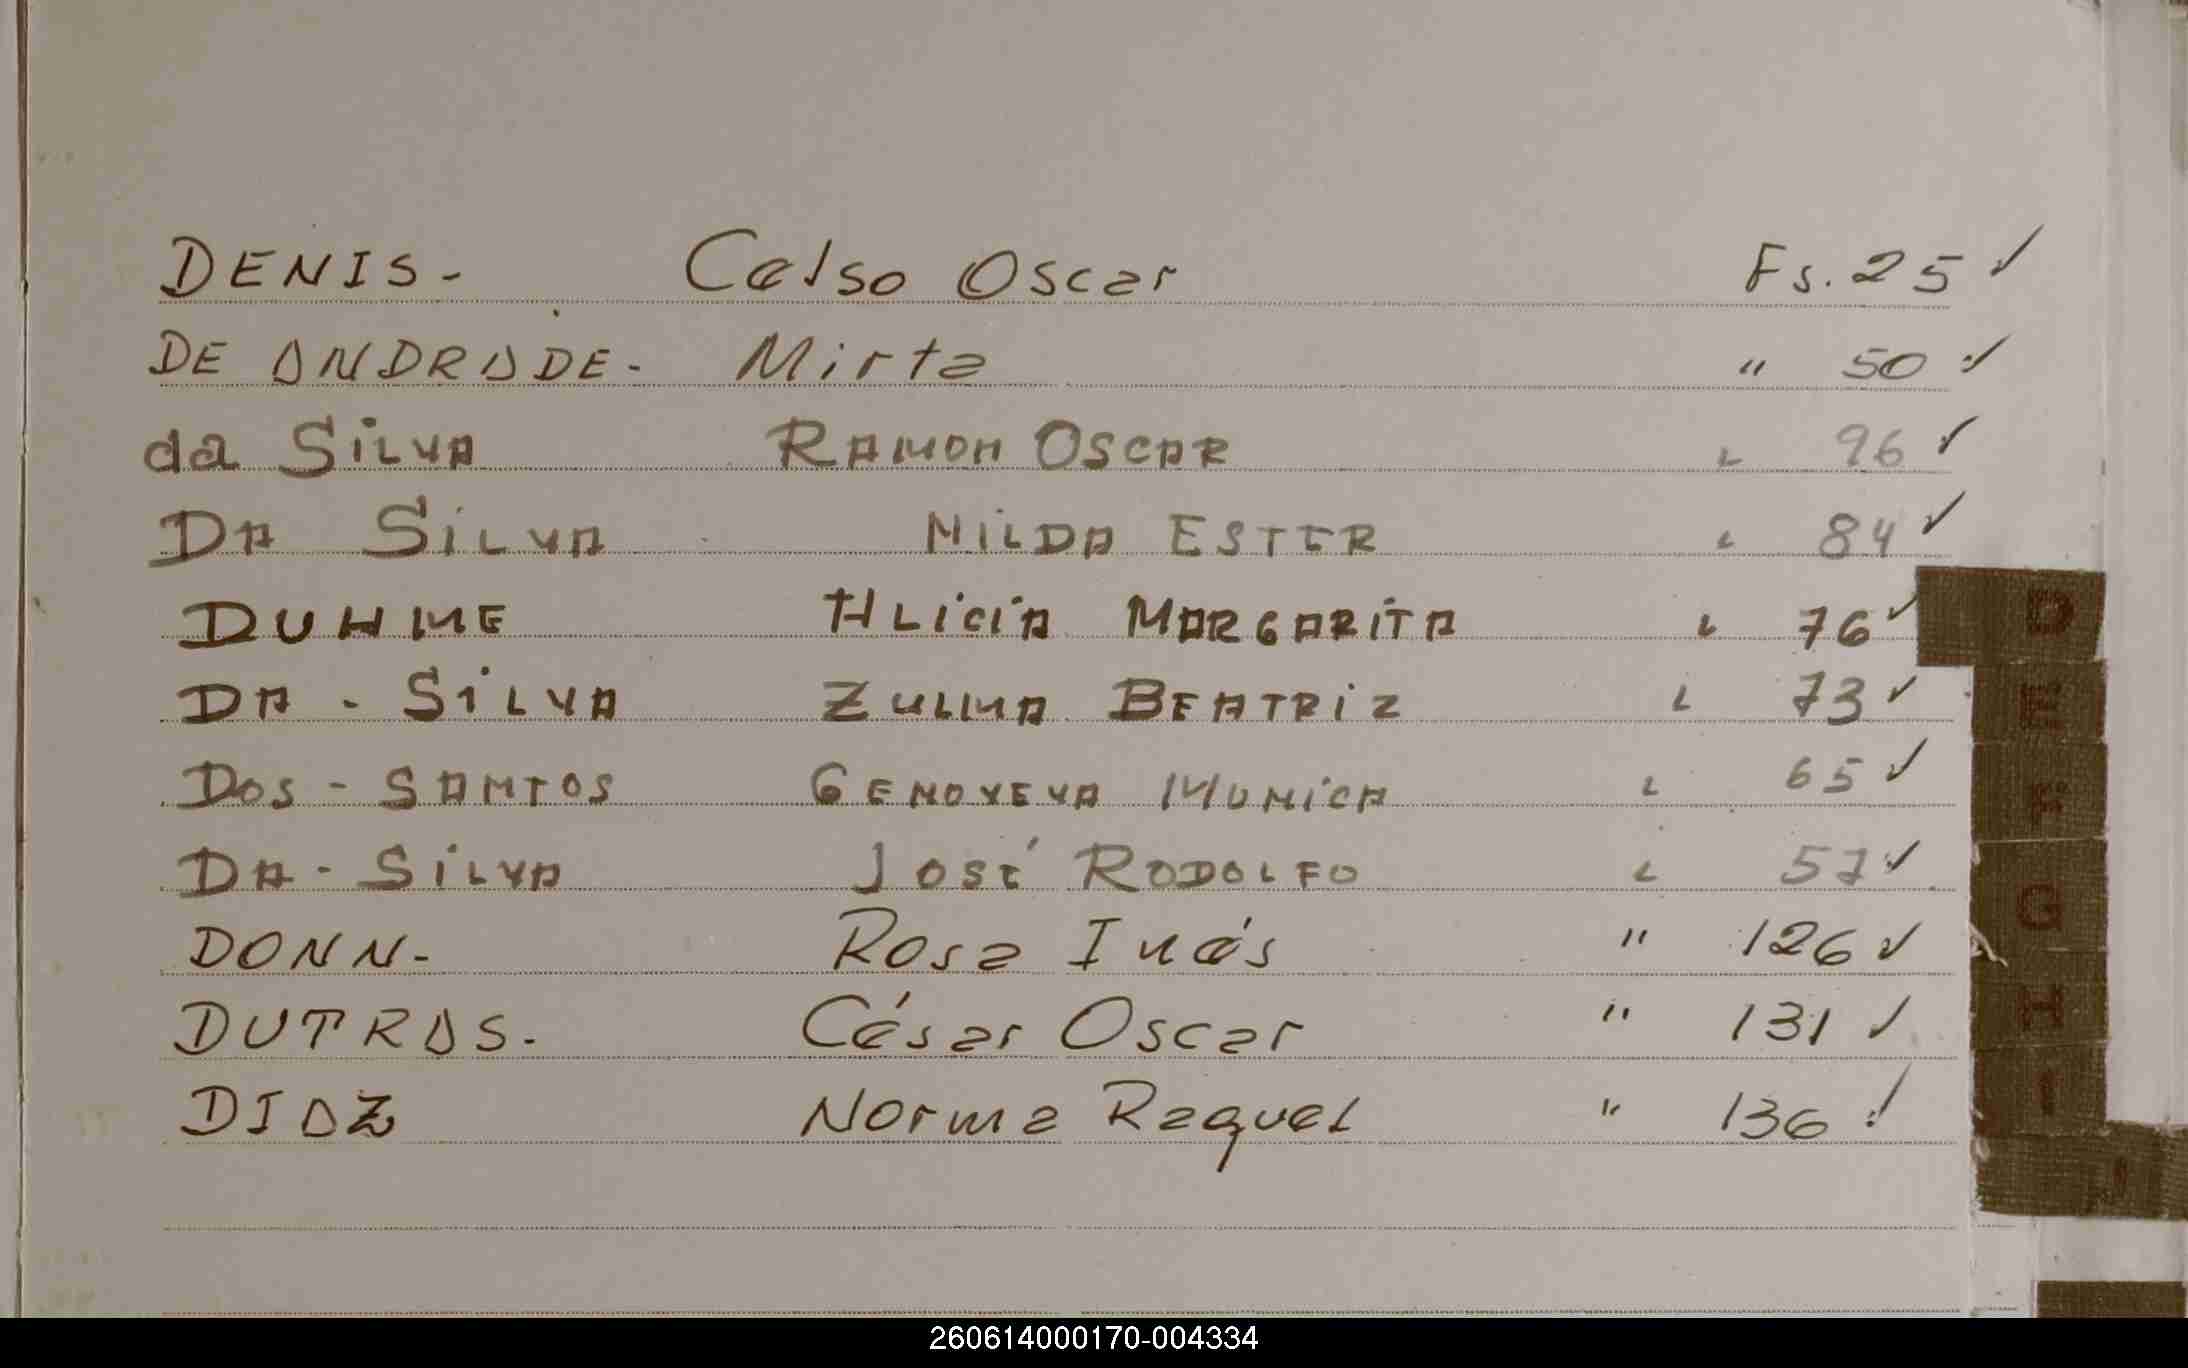 DENIS - Celso Oscar Fs. 25 ✓
DE ANDRADE - Mirta " 50 ✓
da SiLVA RAMON OSCAR " 96 ✓
DA SiLVA NiLDA ESTER " 84 ✓
DUHME ALiCiA MARGARiTA " 76 ✓
DA - SiLVA ZULMA BEATRiZ " 73 ✓
DOS - SANTOS GENOVEVA MONiCA " 65 ✓
DA - SiLVA JOSÉ RODOLFO " 57 ✓
DONN - Rosa Inés " 126 ✓
DUTRAS - César Oscar " 131 ✓
DIAZ Norma Raquel " 136 ✓
D
E
F
G
H
I
260614000170-004334